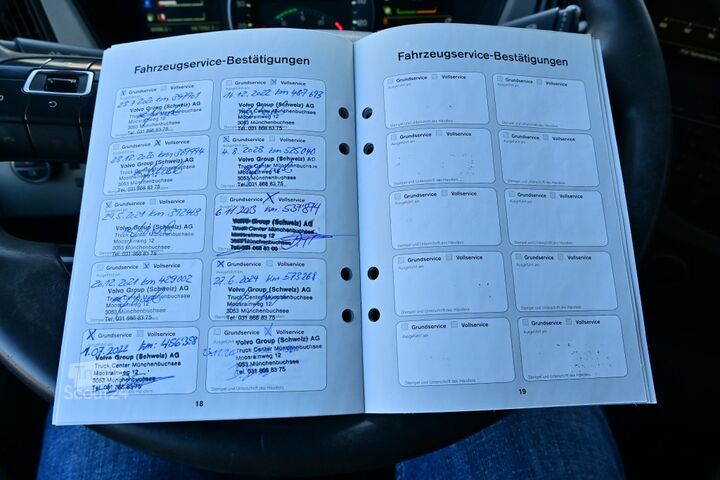 Fahrzeugservice-Bestätigungen
Grundservice Vollservice
Ausgeführt am
Volvo Group (Schweiz) AG
Truck
Moosrainweg 12
3053 Münchenbuchsee
Tel. 031 868 83 75
Grundservice Vollservice
Volvo Group (Schweiz) AG
Truck
Moosrainweg 12
3053 Münchenbuchsee
Tel. 031 868 83 75
Grundservice Vollservice
29.5.2021 km 392448
Volvo Group (Schweiz) AG
Truck Center Münchenbuchsee
Moosrainweg 12
3053 Münchenbuchsee
Tel. 031 868 83 75
Grundservice Vollservice
20.12.2021 km 429002
Volvo Group (Schweiz) AG
Truck Center Münchenbuchsee
Moosrainweg 12
3053 Münchenbuchsee
Tel. 031 868 83 75
Grundservice Vollservice
1.07.2022 km: 456358
Volvo Group (Schweiz) AG
Truck Center Münchenbuchsee
Moosrainweg 12
3053 Münchenbuchsee
Tel. 031 868 83 75
Grundservice Vollservice
16.12.2022 km 487693
Volvo Group (Schweiz) AG
Truck Center Münchenbuchsee
Moosrainweg 12
3053 Münchenbuchsee
Tel. 031 868 83 75
Grundservice Vollservice
4.8.2023 km 525040
Volvo Group (Schweiz) AG
Truck Center Münchenbuchsee
Moosrainweg 12
3053 Münchenbuchsee
Tel. 031 868 83 75
Grundservice Vollservice
6.11.2023 km: 539'874
Volvo Group (Schweiz) AG
Truck Center Münchenbuchsee
Moosrainweg 12
3053 Münchenbuchsee
Grundservice Vollservice
27.6.2024 km 573268
Volvo Group (Schweiz) AG
Truck Center Münchenbuchsee
Moosrainweg 12
3053 Münchenbuchsee
Tel. 031 868 83 75
Grundservice Vollservice
Volvo Group (Schweiz) AG
Truck Center Münchenbuchsee
Moosrainweg 12
3053 Münchenbuchsee
Tel. 031 868 83 75
Stempel und Unterschrift des Händlers
18
Fahrzeugservice-Bestätigungen
Grundservice Vollservice
Ausgeführt am
Stempel und Unterschrift des Händlers
Grundservice Vollservice
Ausgeführt am
Stempel und Unterschrift des Händlers
Grundservice Vollservice
Ausgeführt am
Stempel und Unterschrift des Händlers
Grundservice Vollservice
Ausgeführt am
Stempel und Unterschrift des Händlers
Grundservice Vollservice
Ausgeführt am
Stempel und Unterschrift des Händlers
Grundservice Vollservice
Ausgeführt am
Stempel und Unterschrift des Händlers
Grundservice Vollservice
Ausgeführt am
Stempel und Unterschrift des Händlers
Grundservice Vollservice
Ausgeführt am
Stempel und Unterschrift des Händlers
Grundservice Vollservice
Ausgeführt am
Stempel und Unterschrift des Händlers
Grundservice Vollservice
Ausgeführt am
Stempel und Unterschrift des Händlers
19